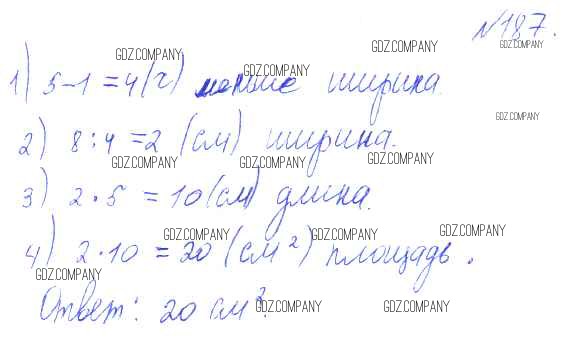 №187.
1) 5-1=4(г) меньше ширина.
2) 8:4=2 (см) ширина.
3) 2·5=10(см) длина.
4) 2·10=20(см²) площадь.
Ответ: 20 см².
GDZ.COMPANY
GDZ.COMPANY
GDZ.COMPANY
GDZ.COMPANY
GDZ.COMPANY
GDZ.COMPANY
GDZ.COMPANY
GDZ.COMPANY
GDZ.COMPANY
GDZ.COMPANY
GDZ.COMPANY
GDZ.COMPANY
GDZ.COMPANY
GDZ.COMPANY